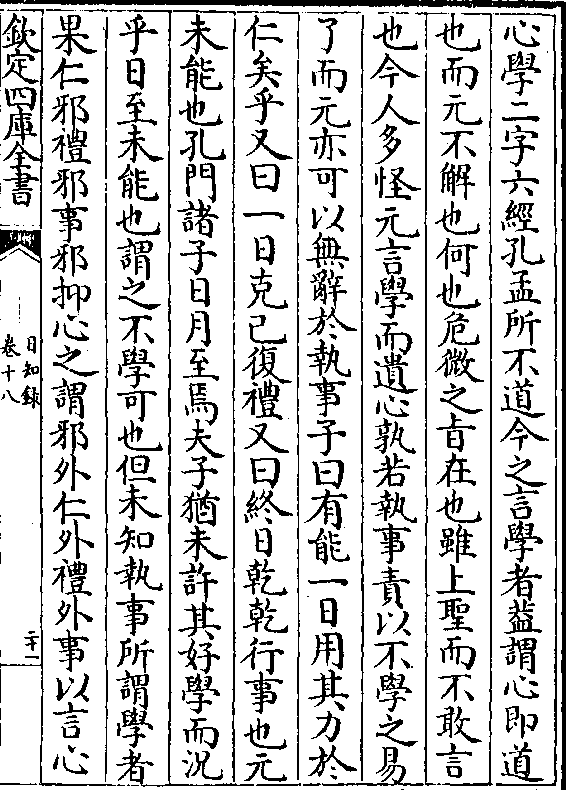 心學二字六經孔孟所不道今之言學者葢謂心即道
也而元不解也何也危微之旨在也雖上聖而不敢言
也今人多怪元言學而遺心孰若執事責以不學之易
了而元亦可以無辭於執事子曰有能一日用其力於
仁矣乎又曰一日克己復禮又曰終日乾乾行事也元
未能也孔門諸子日月至焉夫子猶未許其好學而況
乎日至未能也謂之不學可也但未知執事所謂學者
果仁邪禮邪事邪抑心之謂邪外仁外禮外事以言心
欽定四庫全書
日知錄
卷十八
二十一